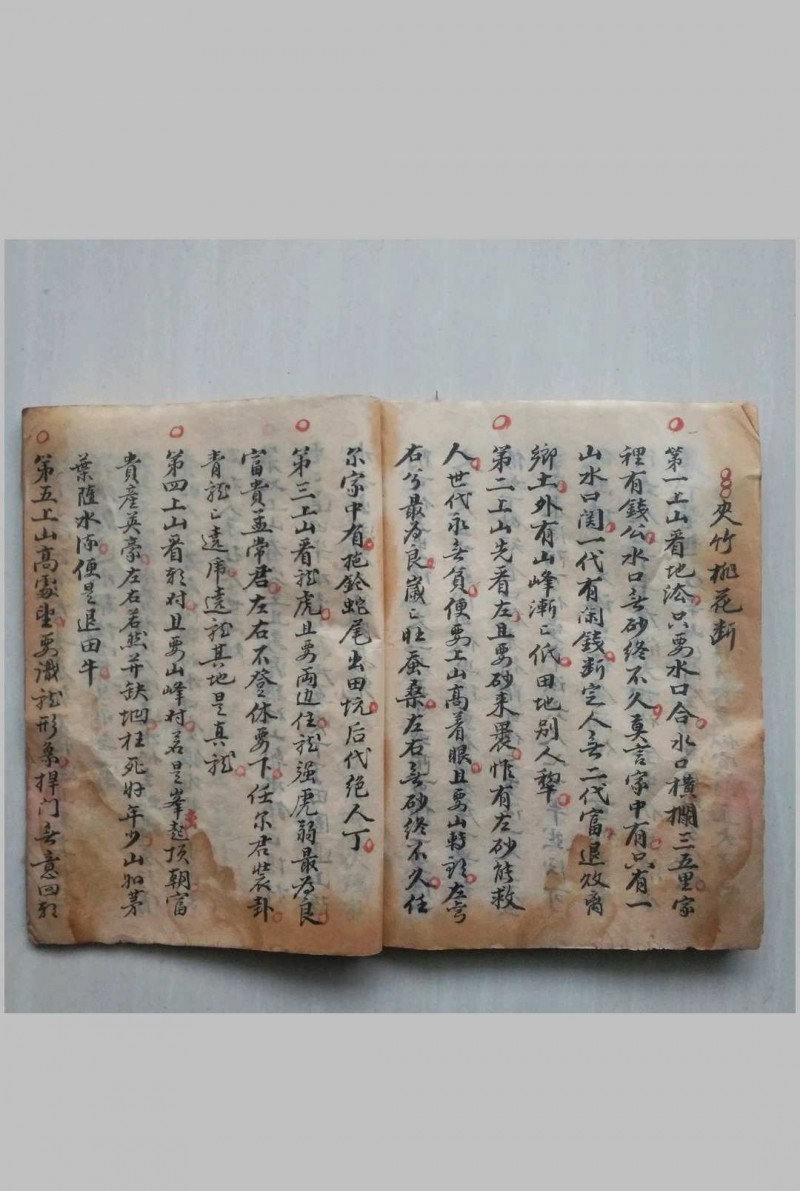 夾竹桃花断
第一上山看地法只要水口合水口横攔三五里家
裡有錢公水口无砂终不久莫言家中有只有一
山水口関一代有闲錢断定人无二代富退敗离
鄉土外有山峰漸〻低田地别人犂
第二上山先看左且要砂来裹惟有左砂能救
人世代永无貧便要上山高着眼且要山轉 左弯
右兮最为良歲〻旺蚕桑左右无砂终不久任
尔家中有拖鎗蛇尾出田坑后代绝人丁
第三上山看龙虎且要两边住龙强虎弱最为良
富貴孟常君左右不登休要下任尔君装卦
青龙〻遠席遠龙其地是真龙
第四上山看 对且要山峰对若是峯起頂朝富
貴產英豪左右若然并缺坳枉死好年少山如茅
葉随水流便是退田牛
第五上山高處坐要識龙形象捍门无意回